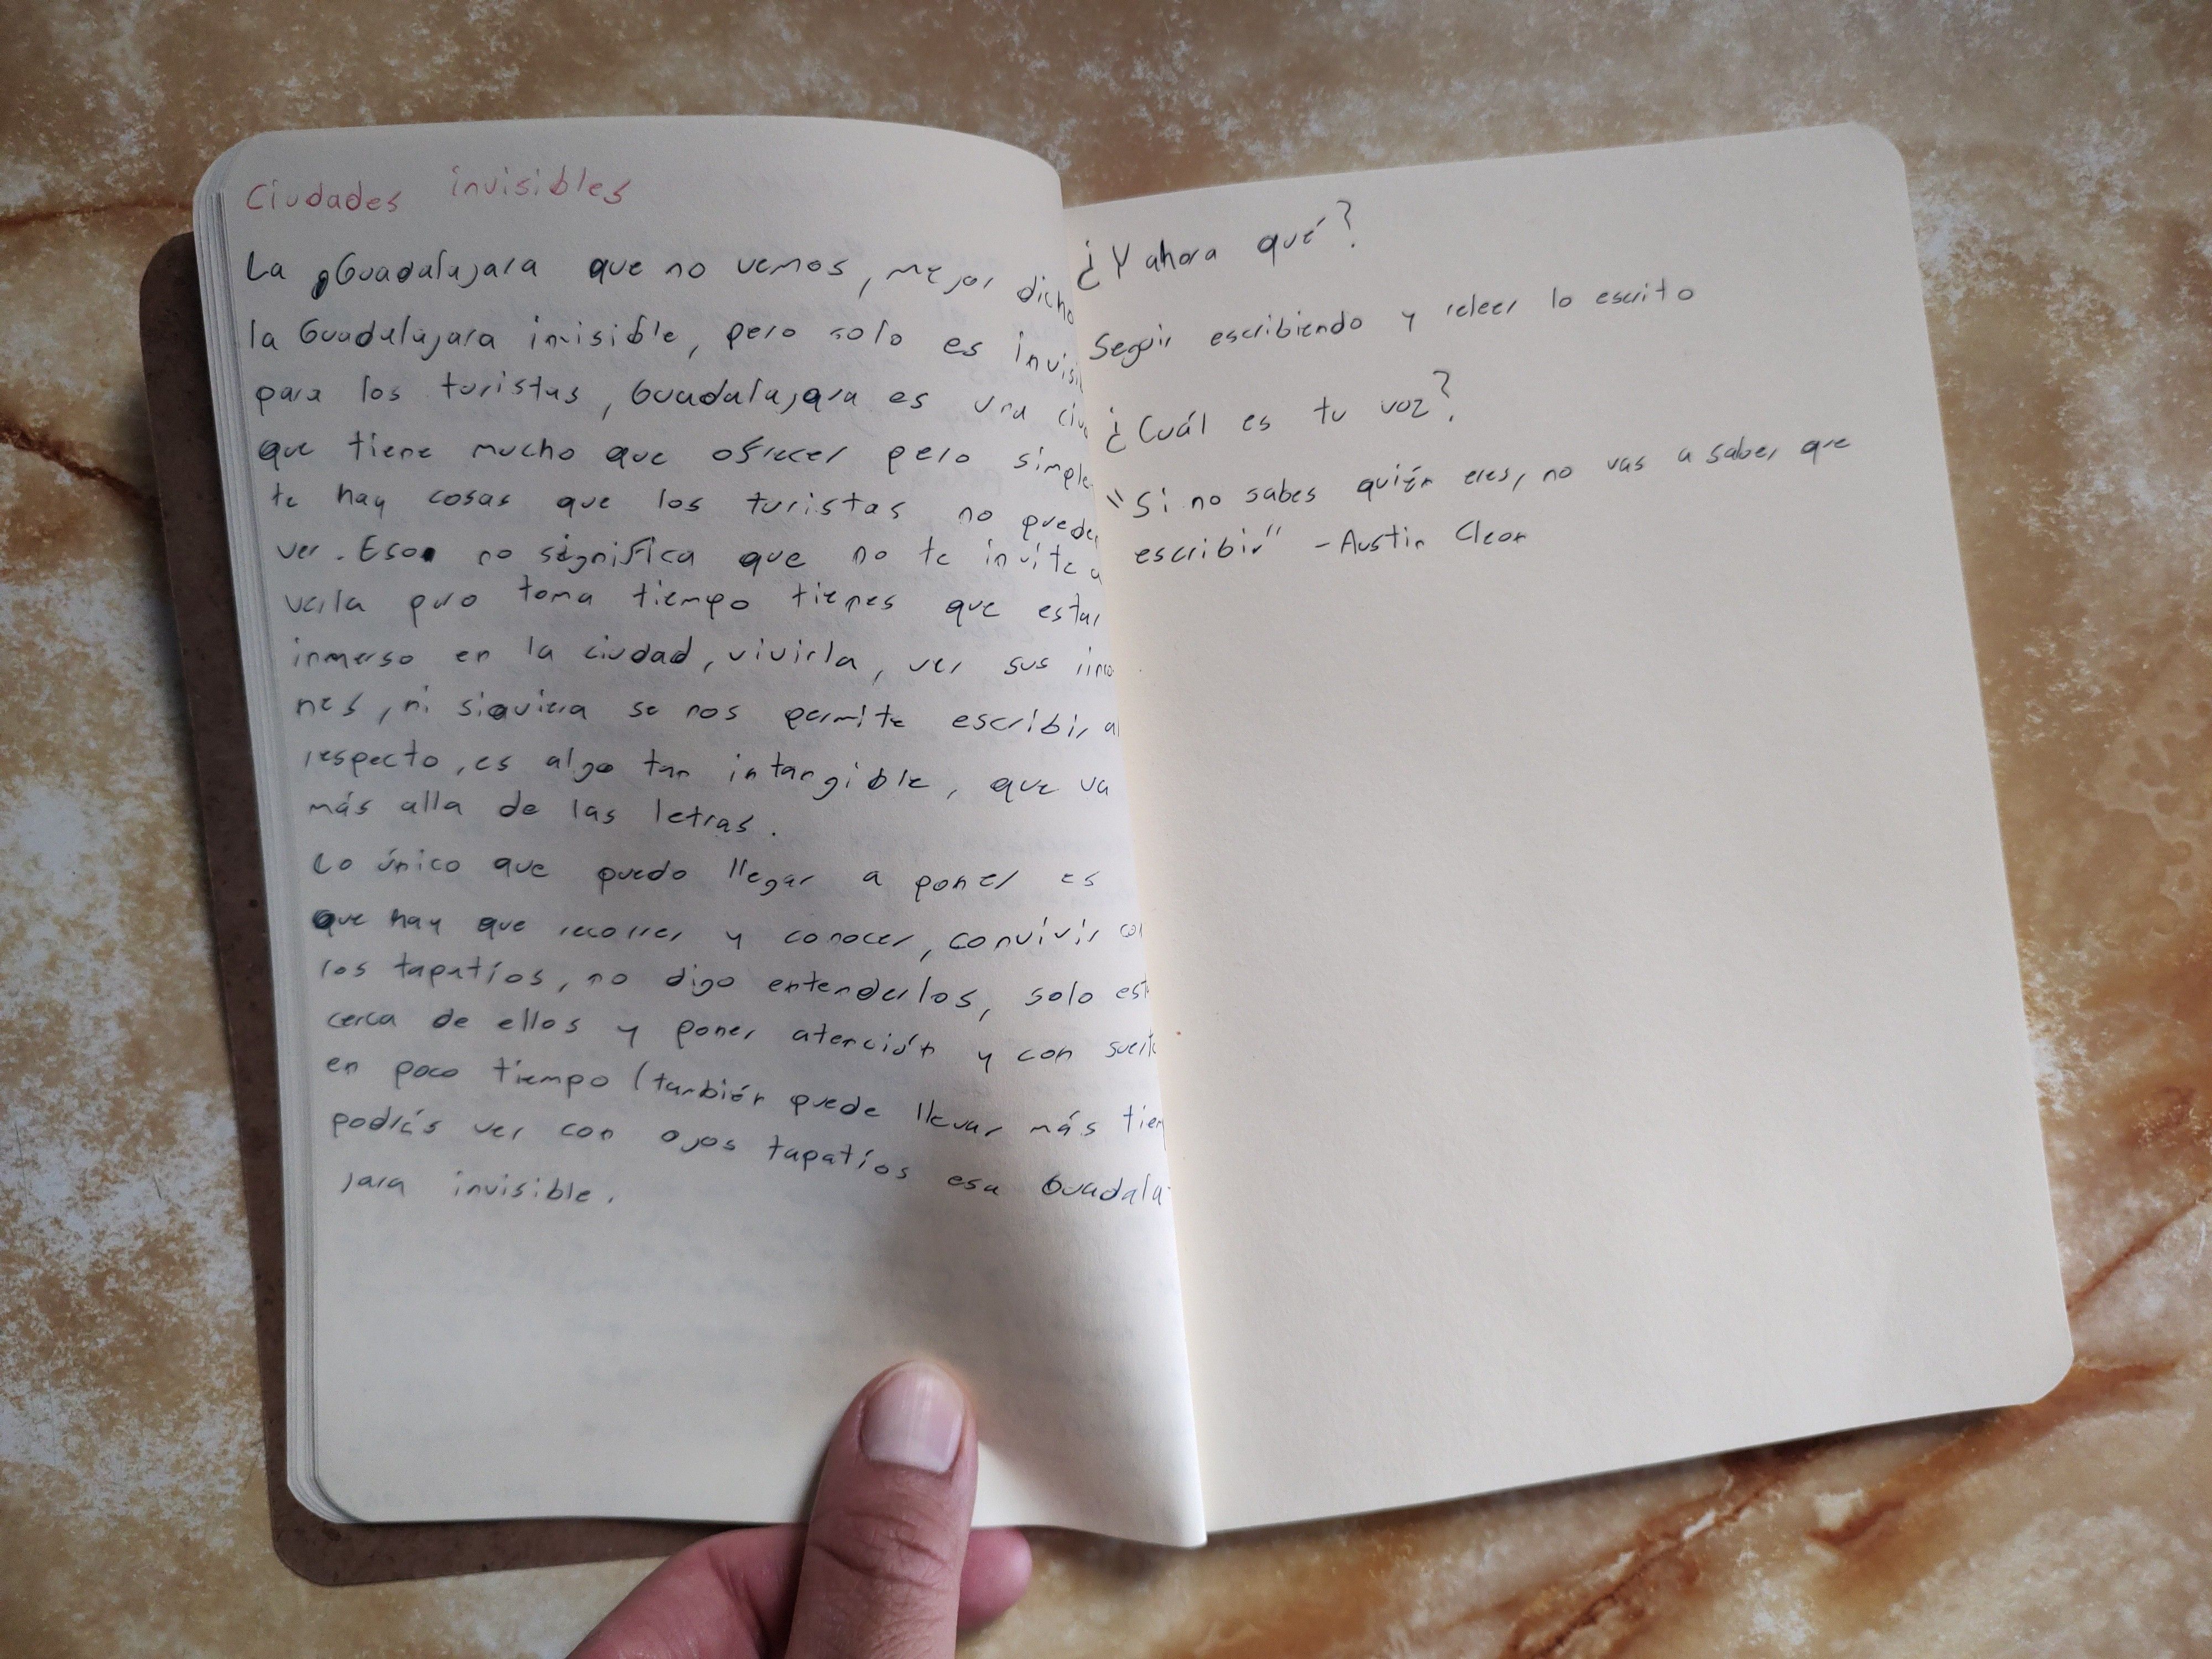 Ciudades invisibles
La Guadalajara que no vemos, mejor dicho
la Guadalajara invisible, pero solo es invisi
para los turistas, Guadalajara es una ciu
que tiene mucho que ofrecer pero simple
te hay cosas que los turistas no pueden
ver. Eso no significa que no te invite a
verla pero toma tiempo tienes que estar
inmerso en la ciudad, vivirla, ver sus rinco
nes, ni siquiera se nos permite escribir al
respecto, es algo tan intangible, que va
más alla de las letras.
Lo único que puedo llegar a poner es
que hay que recorrer y conocer, convivir con
los tapatíos, no digo entenderlos, solo est
cerca de ellos y poner atención y con suerte
en poco tiempo (también puede llevar más tiem
podrás ver con ojos tapatíos esa Guadala-
jara invisible.
¿Y ahora qué?
Seguir escribiendo y releer lo escrito
¿Cuál es tu voz?
"Si no sabes quién eres, no vas a saber que
escribir" - Austin Cleon